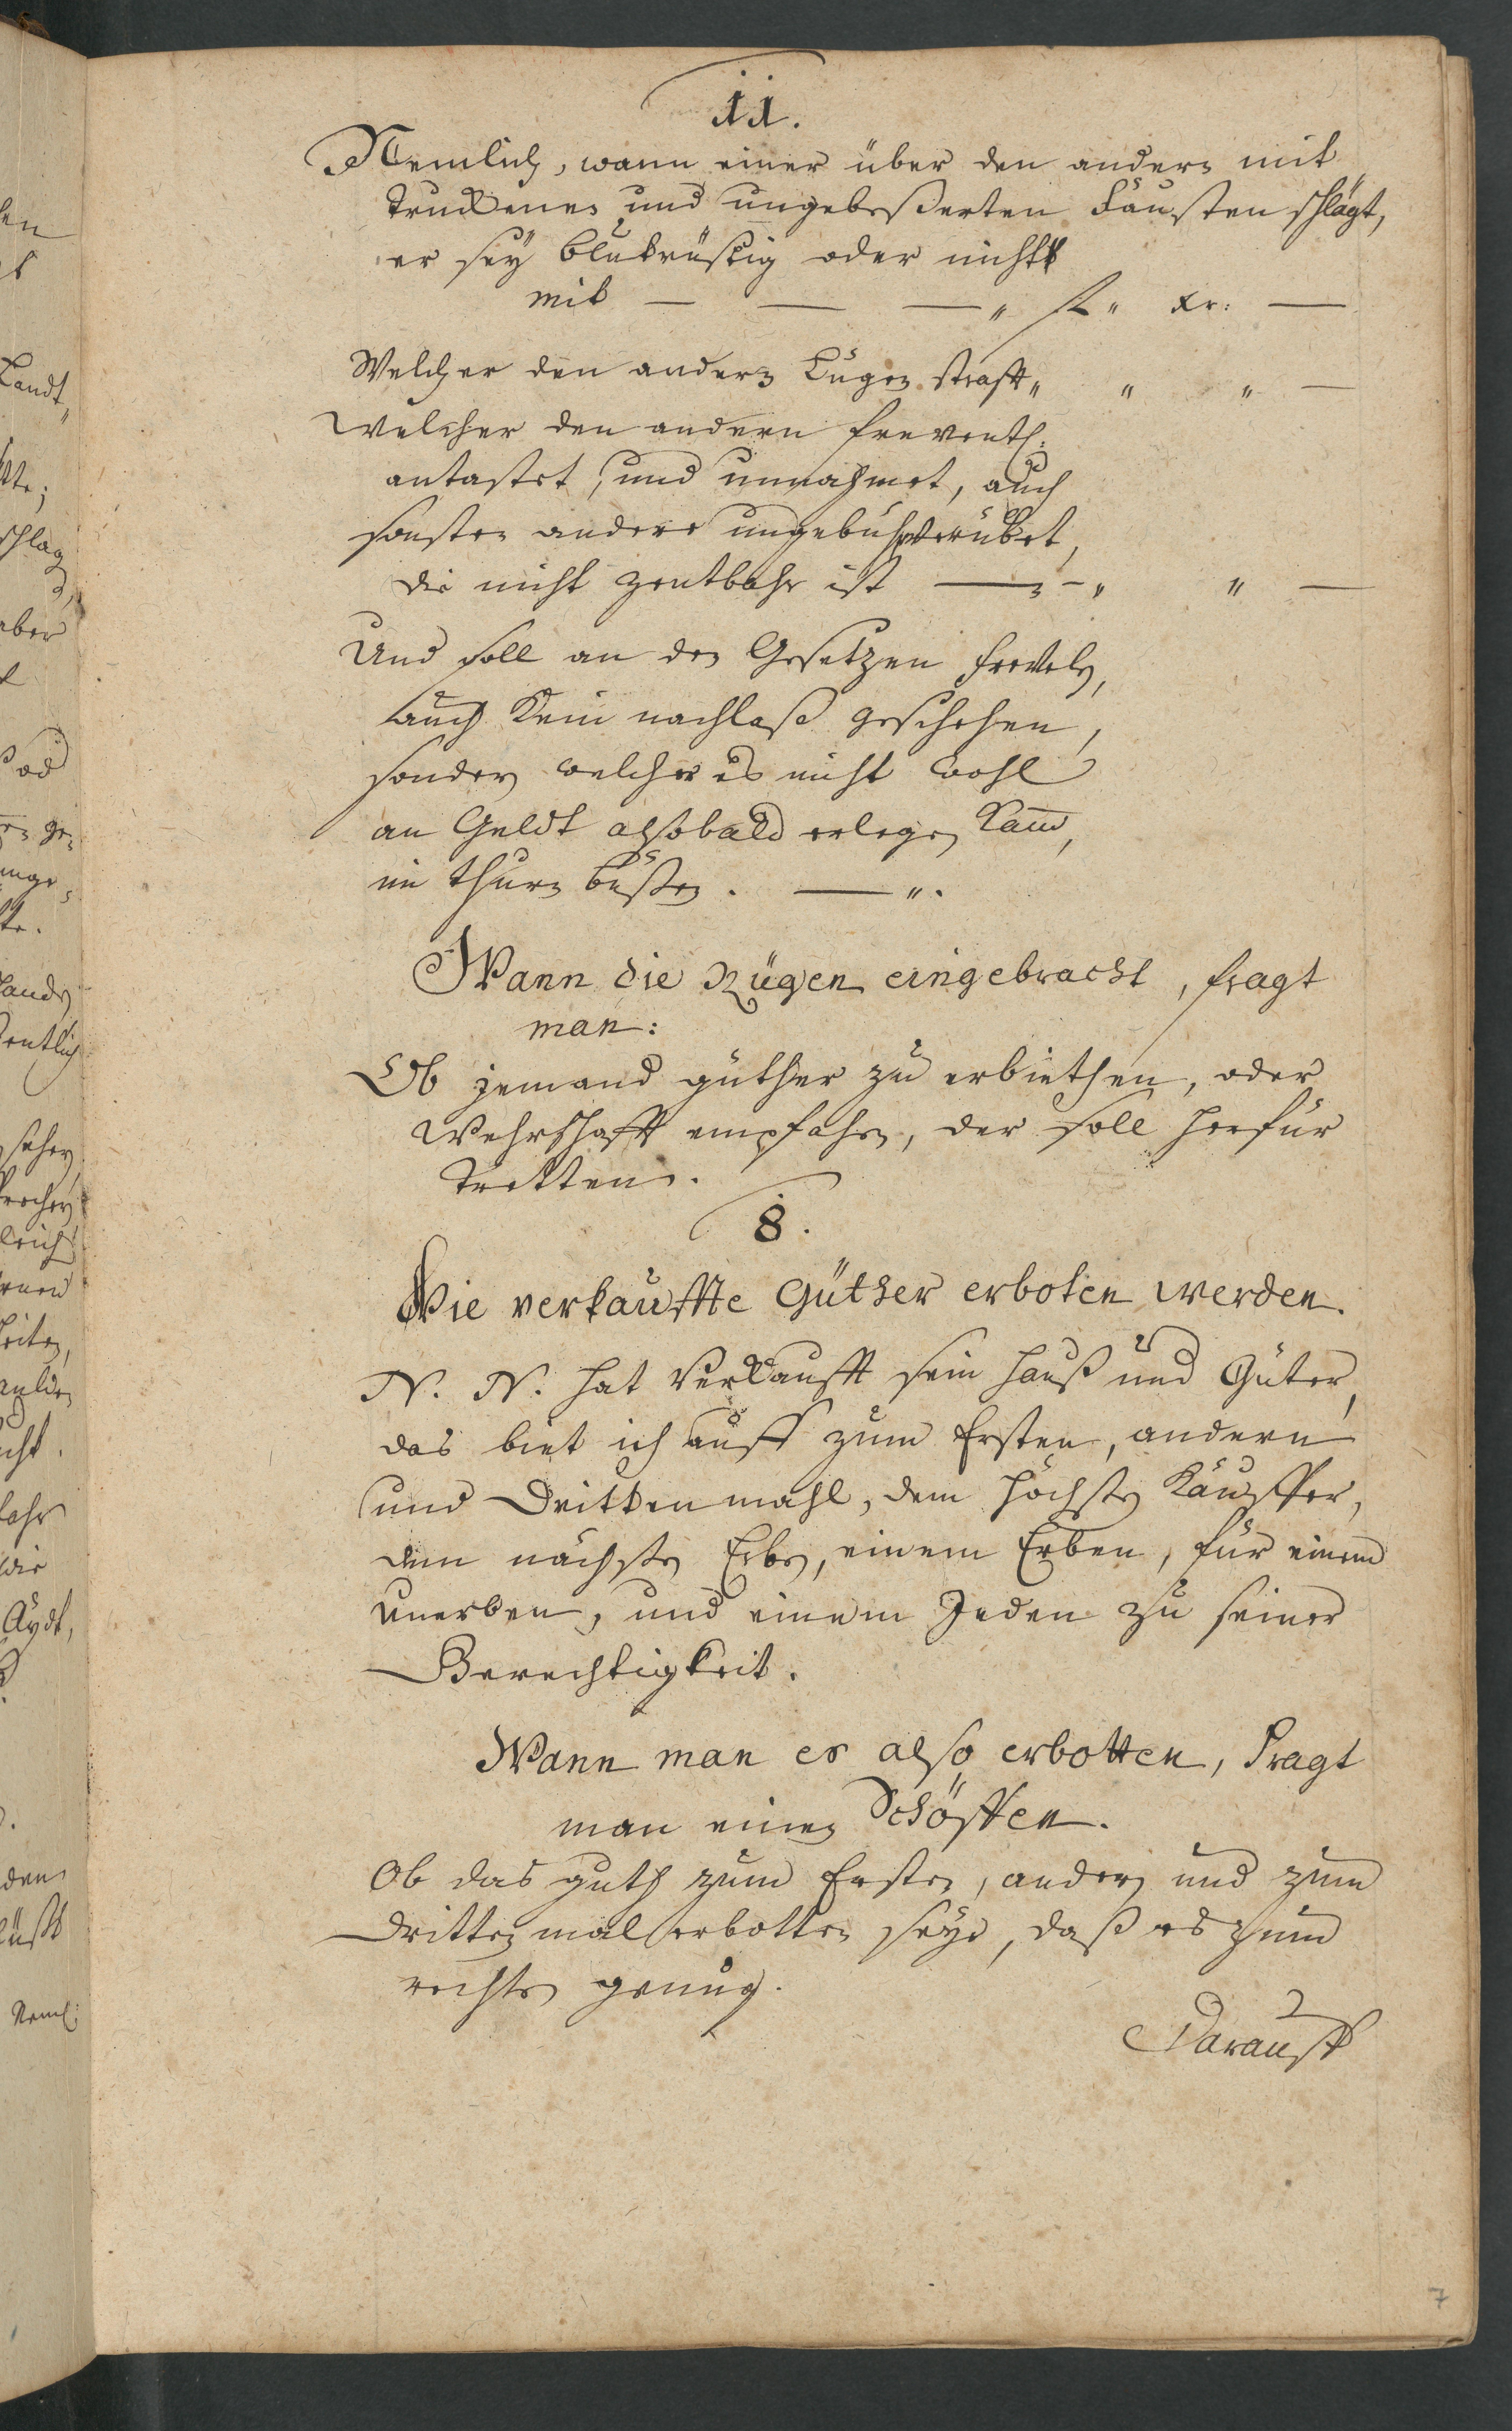 11.
Nemlich, wann einer über den andern mit
truckenen und ungebeßerten Fäusten schlägt,
er seÿ blutrüstig oder nicht
mit — — — „ fl „ xr: —
Welcher den andern Lügen strafft „ „ „ —
Welcher den andern freventl:
antastet, und unnahmet, auch
sonsten andere ungebühr verübet,
die nicht zentbahr ist — – „ „ —
Und soll an den Gesetzen freveln,
auch kein nachlaß geschehen,
sondern welcher es nicht wohl
an Geldt alsobald erlegen kann,
im thurn büßen. — „.
Wann die Rügen eingebracht, fragt
man:
Ob jemand güther zu erbiethen, oder
Wehrschafft empfahen, der soll herfür
tretten.
8.
Wie verkauffte Güther erboten werden.
N. N. hat verkaufft sein hauß und Güter,
das biet ich auff zum Ersten, andern
und Dritten mahl, dem höchsten Käuffer,
dem nächsten Erben, einem Erben, für einem
unerben, und einem Jeden zu seiner
Gerechtigkeit.
Wann man es also erbotten, Fragt
man einen Schöffen.
Ob das guth zum Ersten, andern und zum
dritten mal erbotten seÿe, daß es zum
rechten genug.
Darauff
7
Landt„
schlag
aber
Aÿdt,
Neml: